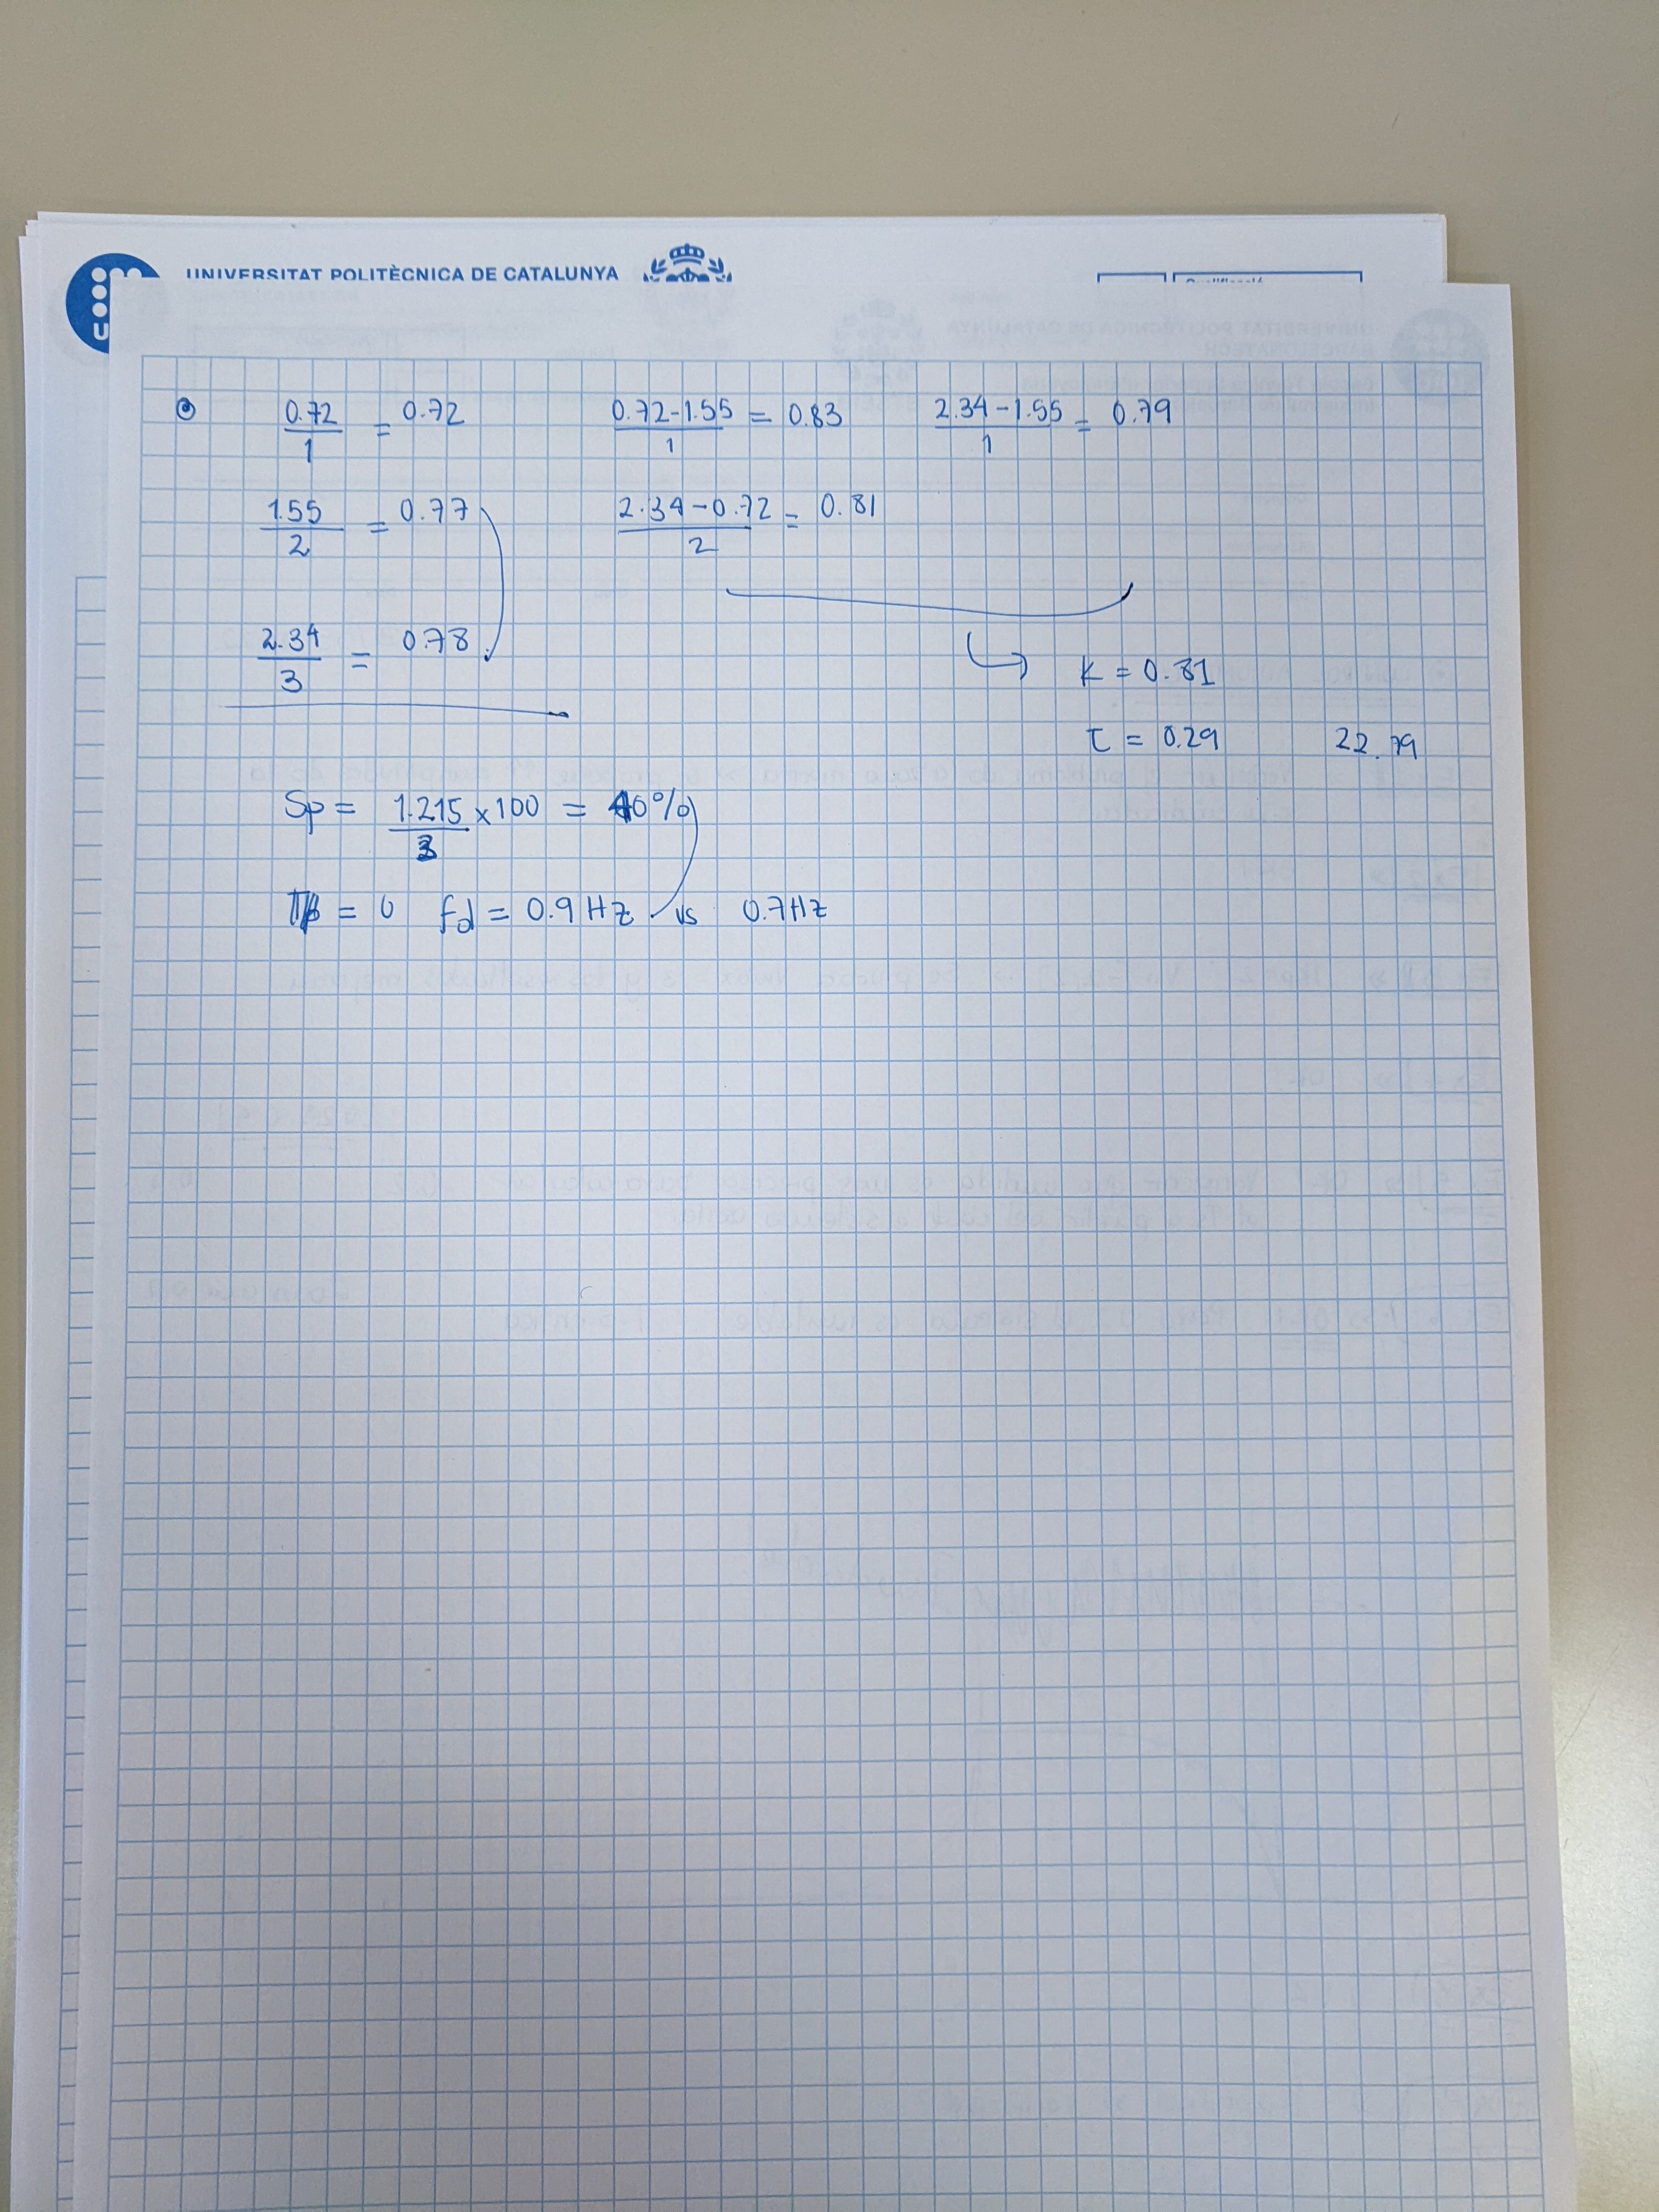 UNIVERSITAT POLITÈCNICA DE CATALUNYA
0.72/1 = 0.72
0.72-1.55/1 = 0.83
2.34-1.55/1 = 0.79
1.55/2 = 0.77
2.34-0.72/2 = 0.81
2.34/3 = 0.78
K = 0.81
τ = 0.29
22.79
Sp = 1.215/3 x100 = 40%
= 0 fd = 0.9 Hz vs 0.7Hz